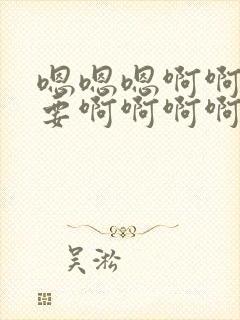 嗯嗯嗯啊啊
要啊啊啊啊
吴淞